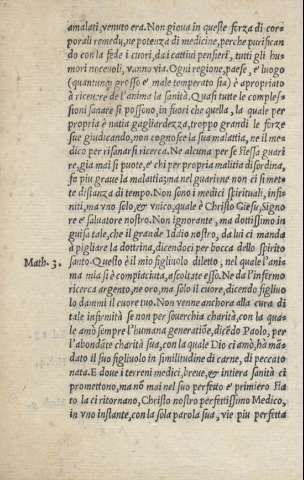 amalati, venuto era. Non gioua in queste forza di cor-
porali remedij, ne potenza di medicine, perche purifican
do con la fede i cuori, da i cattiui pensieri, tutti gli hu-
mori noceuoli, vanno via. Ogni regione, paese, e' luogo
(quantunqȝ grosso e' male temperato sia) è apropriato
à riceuere de l'anima la sanità. Quasi tutte le comples-
sioni sanare si possono, in fuori che quella, la quale per
propria è natia gagliardezza, troppo grandi le forze
sue giudicando, non cognosce la sua malattia, ne il me-
dico per risanarsi ricerca. Ne alcuna per se stessa guari
re, già mai si puote, e' chi per propria malitia disordina,
fa piu graue la malattia: ma nel guarirne non ci si met-
te distanza di tempo. Non sono i medici spirituali, infi-
niti, ma vno solo, & vnico, quale è Christo Giesu, Signo
re e' saluatore nostro. Non ignorante, ma dottissimo in
guisa tale, che il grande Iddio nostro, da lui ci manda
à pigliare la dottrina, dicendoci per bocca dello spirito
Math. 3. santo. Questo è il mio figliuolo diletto, nel quale l'ani
ma mia si è compiaciuta, ascoltate esso. Ne da l'infermo
ricerca argento, ne oro, ma solo il cuore, dicendo figliuo
lo dammi il cuore tuo. Non venne anchora alla cura di
tale infirmità se non per souerchia charità, con la qua
le amò sempre l'humana generatiōe, dicēdo Paolo, per
l'abondāte charità sua, con la quale Dio ci amò, hà mā-
dato il suo figliuolo in similitudine di carne, di peccato
nata. E doue i terreni medici, breue, & intiera sanità ci
promettono, ma nō mai nel suo perfetto e' primiero sta
to la ci ritornano, Christo nostro perfettissimo Medico,
in vno instante, con la sola parola sua, vie piu perfetta